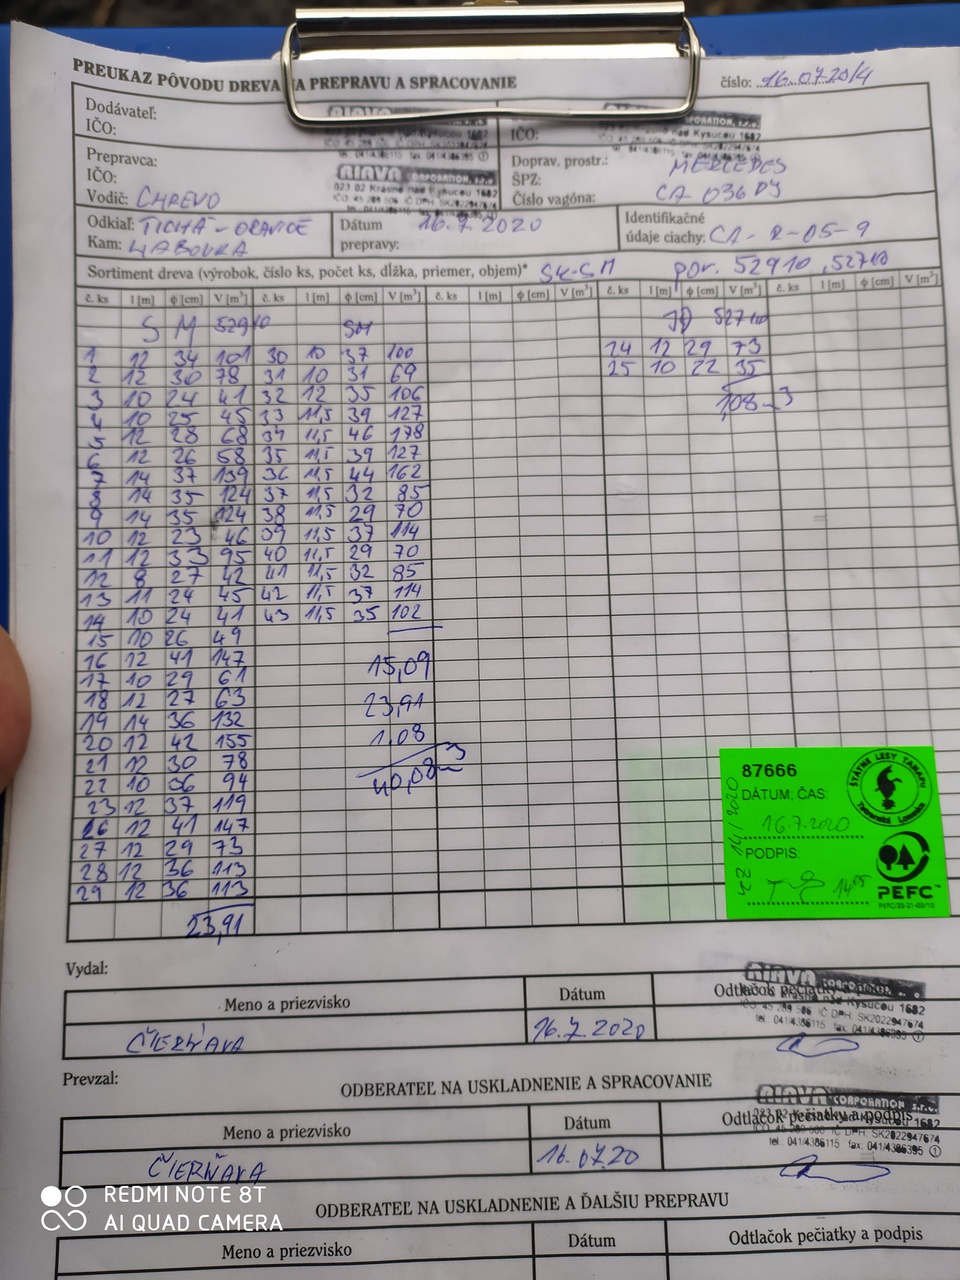 PREUKAZ PÔVODU DREVA NA PREPRAVU A SPRACOVANIE
číslo: 16.07.20/4
Dodávateľ:
IČO:
IČO:
Prepravca:
IČO:
Vodič: CHREVO
Doprav. prostr.: MERCEDES
ŠPZ:
Číslo vagóna: CA 036 DJ
Odkiaľ: TICHÁ - ORAVICE
Kam: HABOVKA
Dátum prepravy: 16.7.2020
Identifikačné údaje ciachy: CA-R-05-9
Sortiment dreva (výrobok, číslo ks, počet ks, dĺžka, priemer, objem)* SK-SM por. 52910, 52710
č. ks l [m] ϕ [cm] V [m³] č. ks l [m] ϕ [cm] V [m³] č. ks l [m] ϕ [cm] V [m³] č. ks l [m] ϕ [cm] V [m³] č. ks l [m] ϕ [cm] V [m³]
SM 52910 SM JD 52710
1 12 34 101 30 10 37 100 24 12 29 73
2 12 30 78 31 10 31 69 25 10 22 35
3 10 24 41 32 12 35 106 1,08 m3
4 10 25 45 33 11,5 39 127
5 12 28 68 34 11,5 46 178
6 12 26 58 35 11,5 39 127
7 14 37 139 36 11,5 44 162
8 14 35 124 37 11,5 32 85
9 14 35 124 38 11,5 29 70
10 12 23 46 39 11,5 37 114
11 12 33 95 40 11,5 29 70
12 8 27 42 41 11,5 32 85
13 11 24 45 42 11,5 37 114
14 10 24 41 43 11,5 35 102
15 10 26 49
16 12 41 147 15,09
17 10 29 61
18 12 27 63 23,91
19 14 36 132 1,08
20 12 42 155
21 12 30 78 40,08 m3
22 10 36 94
23 12 37 119
26 12 41 147
27 12 29 73
28 12 36 113
29 12 36 113
23,91
87666
DÁTUM, ČAS:
16.7.2020
PODPIS:
14
ŠTÁTNE LESY TANAPU
Tatranská Lomnica
PEFC
Vydal:
Meno a priezvisko Dátum Odtlačok pečiatky a podpis
ČIERŇAVA 16.7.2020
RIAVA CORPORATION, s.r.o.
023 02 Krásno nad Kysucou 1682
IČO 45 289 506 IČ DPH: SK2022947674
tel.: 041/4386115 fax: 041/4386395 ①
Prevzal:
ODBERATEĽ NA USKLADNENIE A SPRACOVANIE
Meno a priezvisko Dátum Odtlačok pečiatky a podpis
ČIERŇAVA 16.07.20
RIAVA CORPORATION s.r.o.
023 02 Krásno nad Kysucou 1682
IČO 45 289 506 IČ DPH: SK2022947674
tel.: 041/4386115 fax: 041/4386395 ①
ODBERATEĽ NA USKLADNENIE A ĎALŠIU PREPRAVU
Meno a priezvisko Dátum Odtlačok pečiatky a podpis
REDMI NOTE 8T
AI QUAD CAMERA